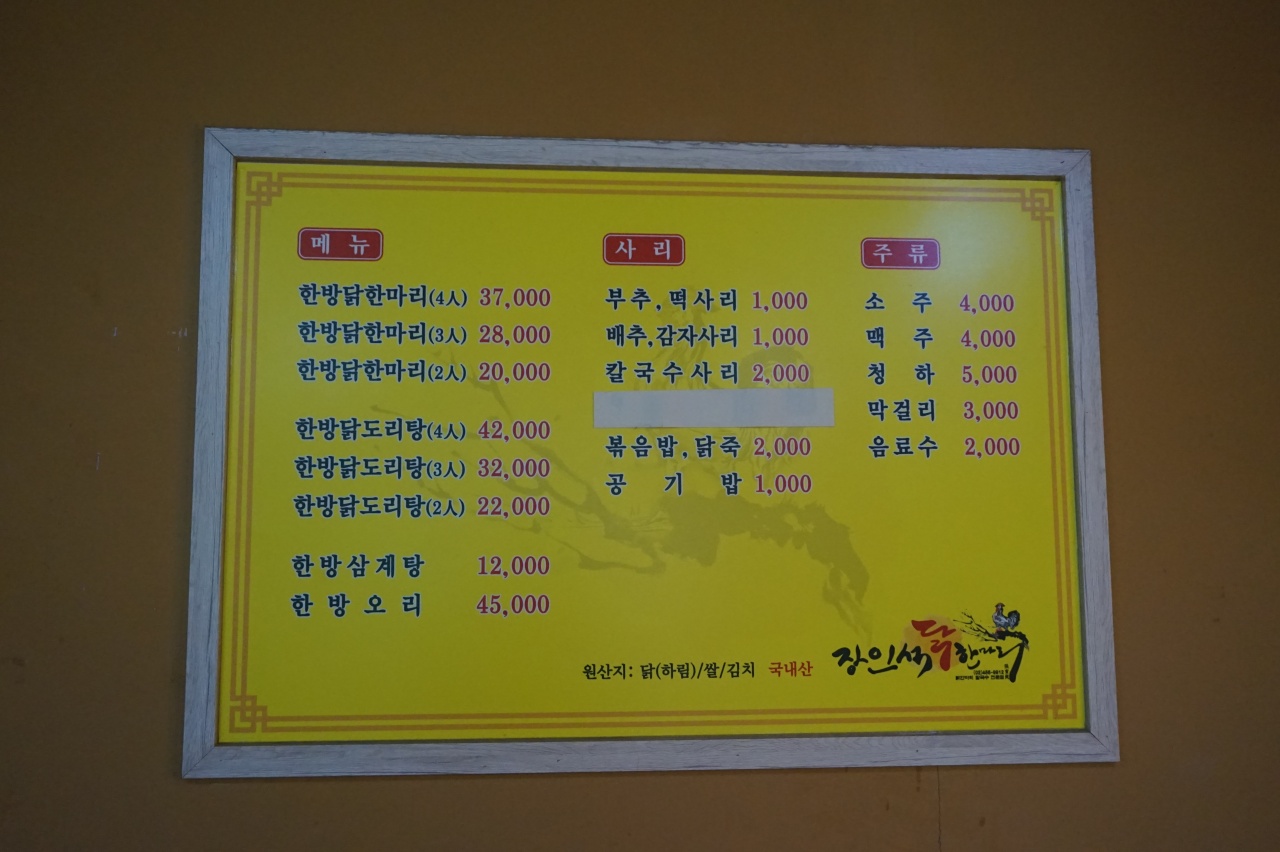 메뉴
한방닭한마리(4人) 37,000
한방닭한마리(3人) 28,000
한방닭한마리(2人) 20,000
한방닭도리탕(4人) 42,000
한방닭도리탕(3人) 32,000
한방닭도리탕(2人) 22,000
한방삼계탕 12,000
한방오리 45,000
사리
부추,떡사리 1,000
배추,감자사리 1,000
칼국수사리 2,000
볶음밥,닭죽 2,000
공기밥 1,000
주류
소주 4,000
맥주 4,000
청하 5,000
막걸리 3,000
음료수 2,000
원산지: 닭(하림)/쌀/김치 국내산
장인석닭한마리